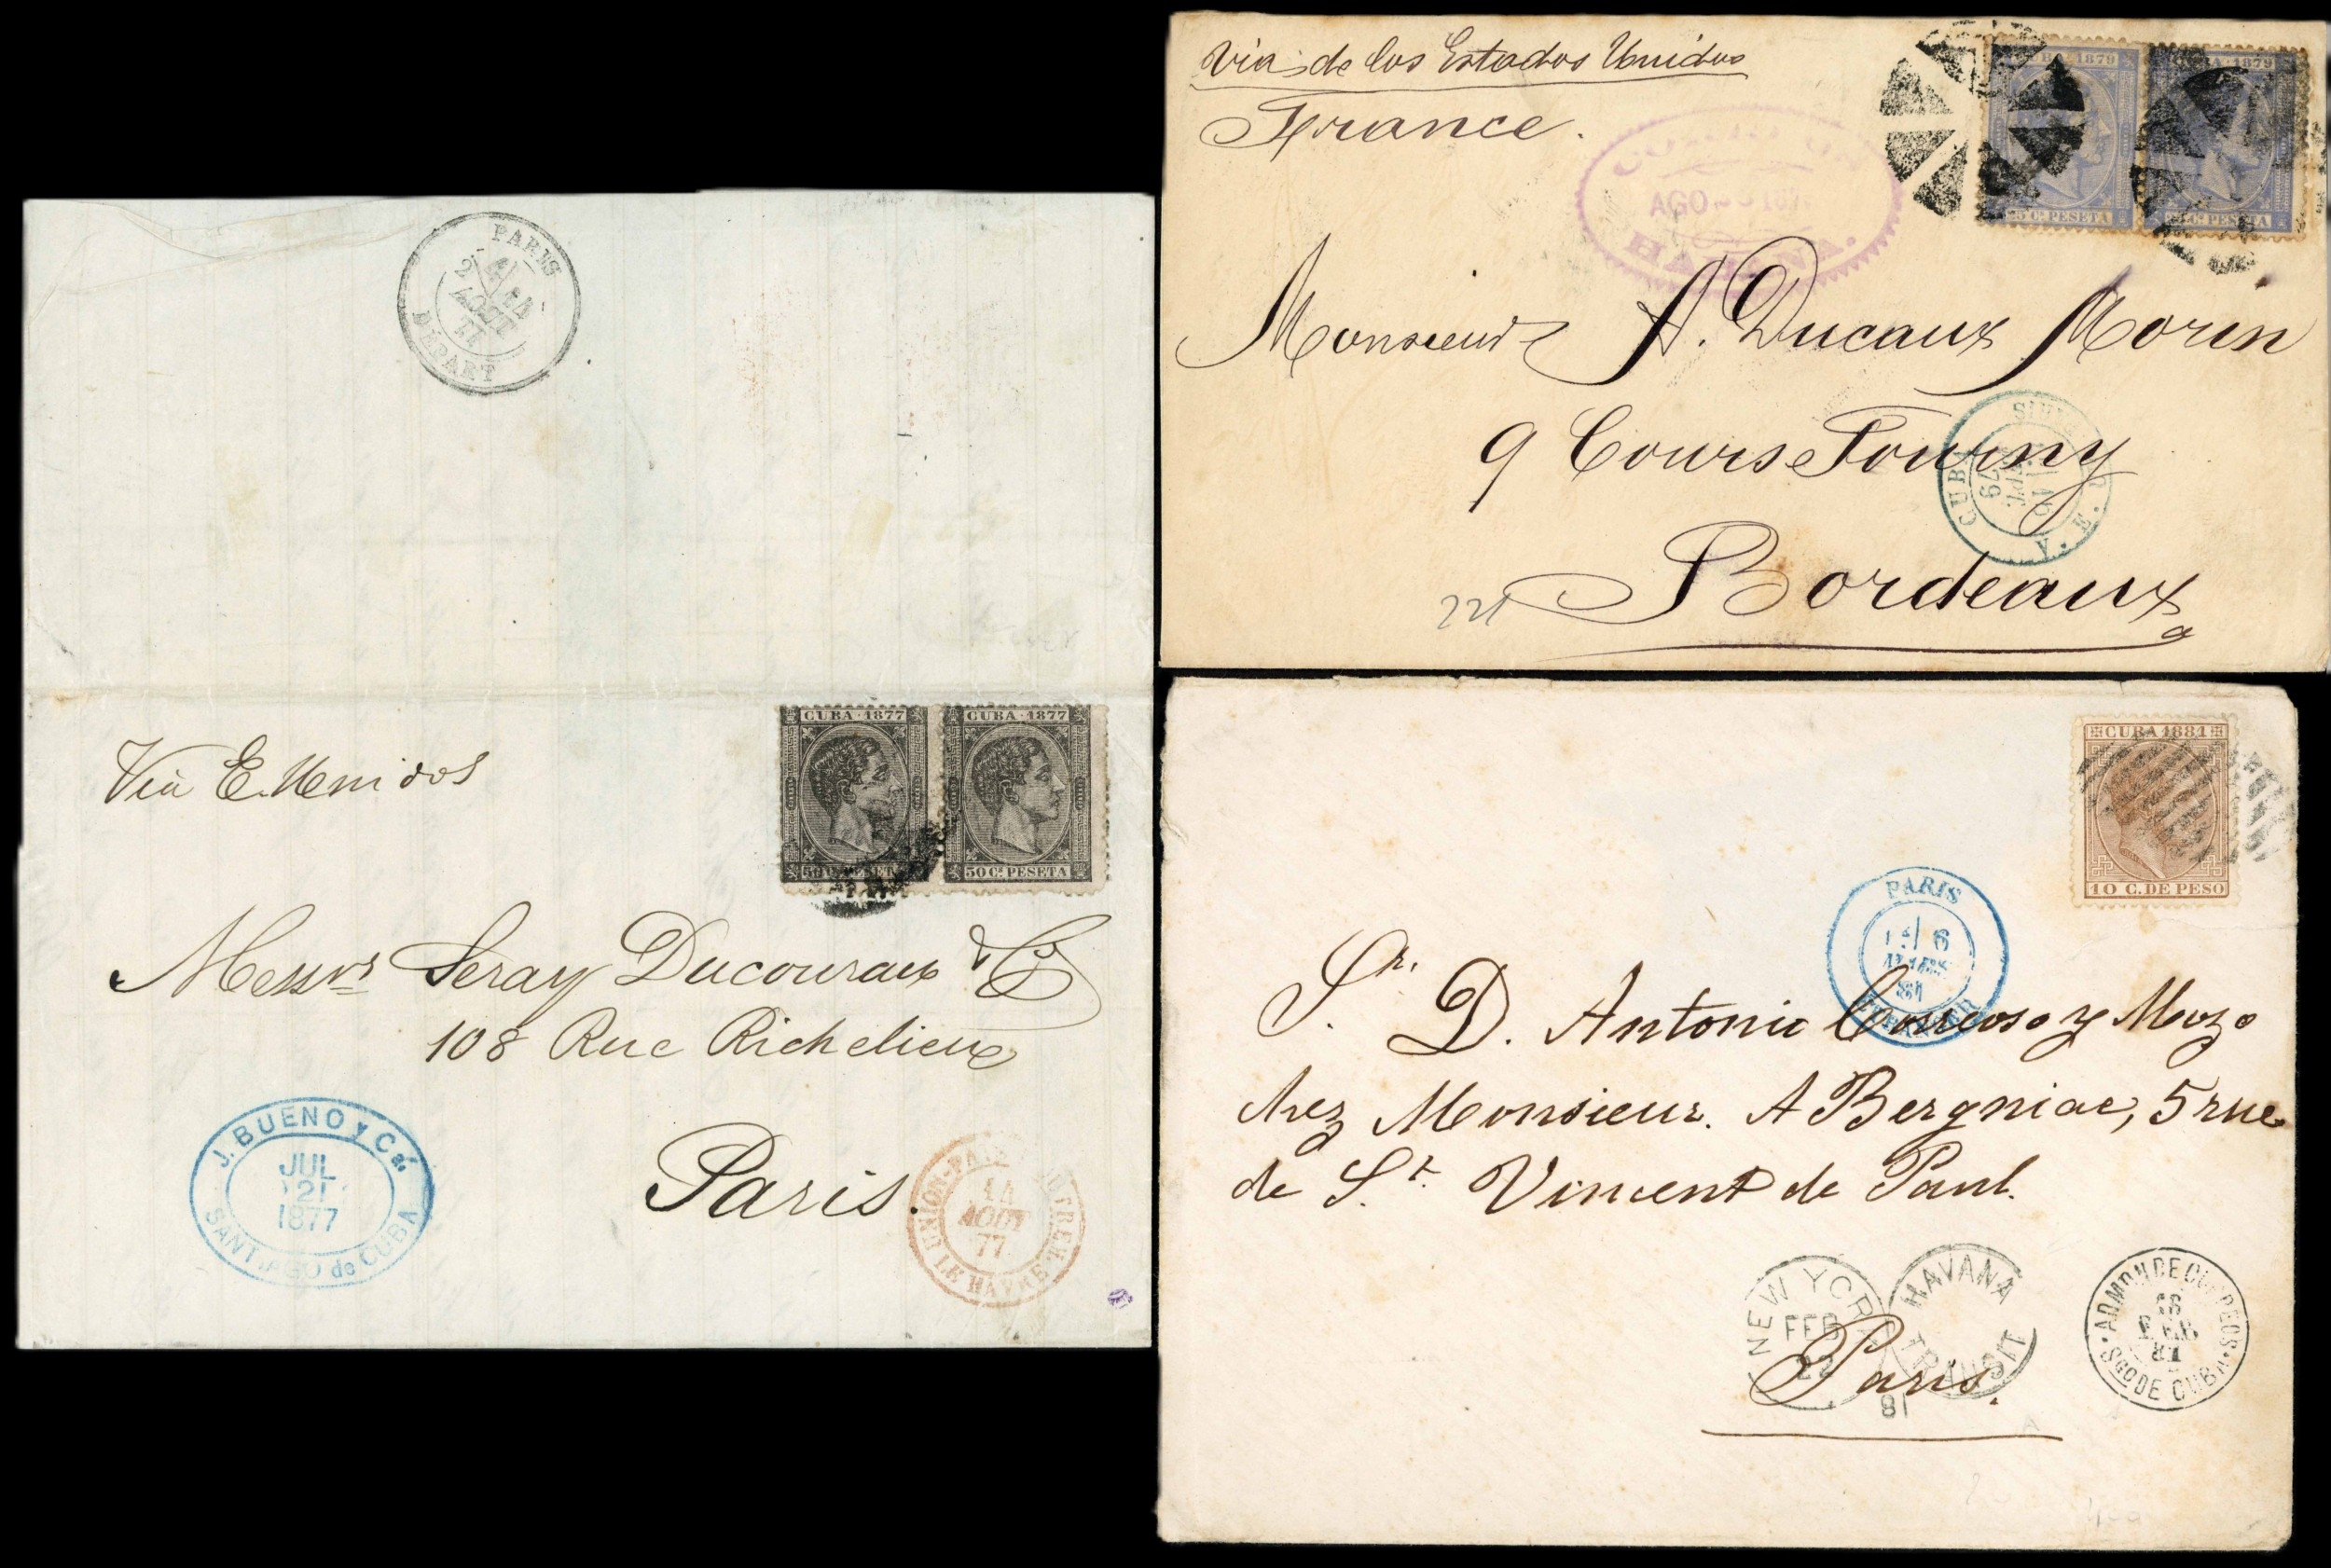 PARIS
AOUT
77
DÉPART
CUBA · 1877
CUBA · 1877
50 C. PESETA
Via E. Unidos
Messrs Seray Ducouraux & Cª
108 Rue Richelieu
Paris.
J. BUENO y Ca.
JUL
21
1877
SANTIAGO de CUBA
14
AOUT
77
LE HAVRE
Via de los Estados Unidos
France.
AGO
HABANA.
1879
CUBA · 1879
25 C. PESETA
C. PESETA
Monsieur A. Ducaux Morin
9 Cours Tourny
Bordeaux
221
CUBA
SEPT
79
CUBA 1881
10 C. DE PESO
PARIS
6
MARS
81
ETRANGER
Sr. D. Antonio y Mozo
chez Monsieur. A Bergniac, 5 rue
de St. Vincent de Paul.
Paris.
NEW YORK
FEB
22
81
HAVANA
TRANSIT
ADMON DE CORREOS
FEB
81
SGO DE CUBA